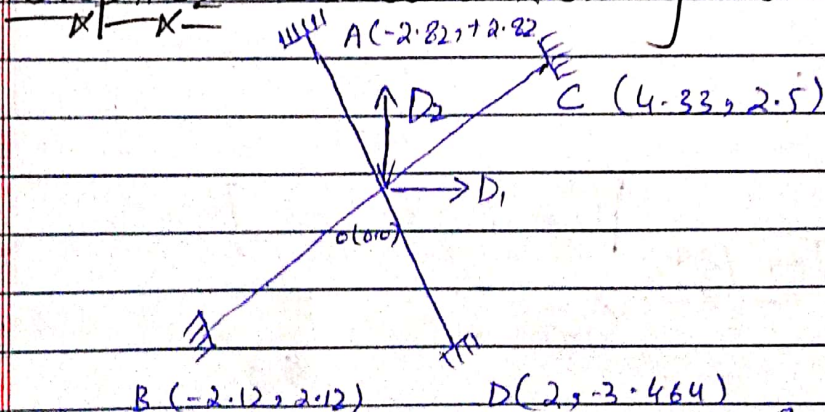 A(-2.82,+2.82
C (4.33,2.5)
D2
D1
O(0,0)
B(-2.12,2.12)
D(2,-3.464)